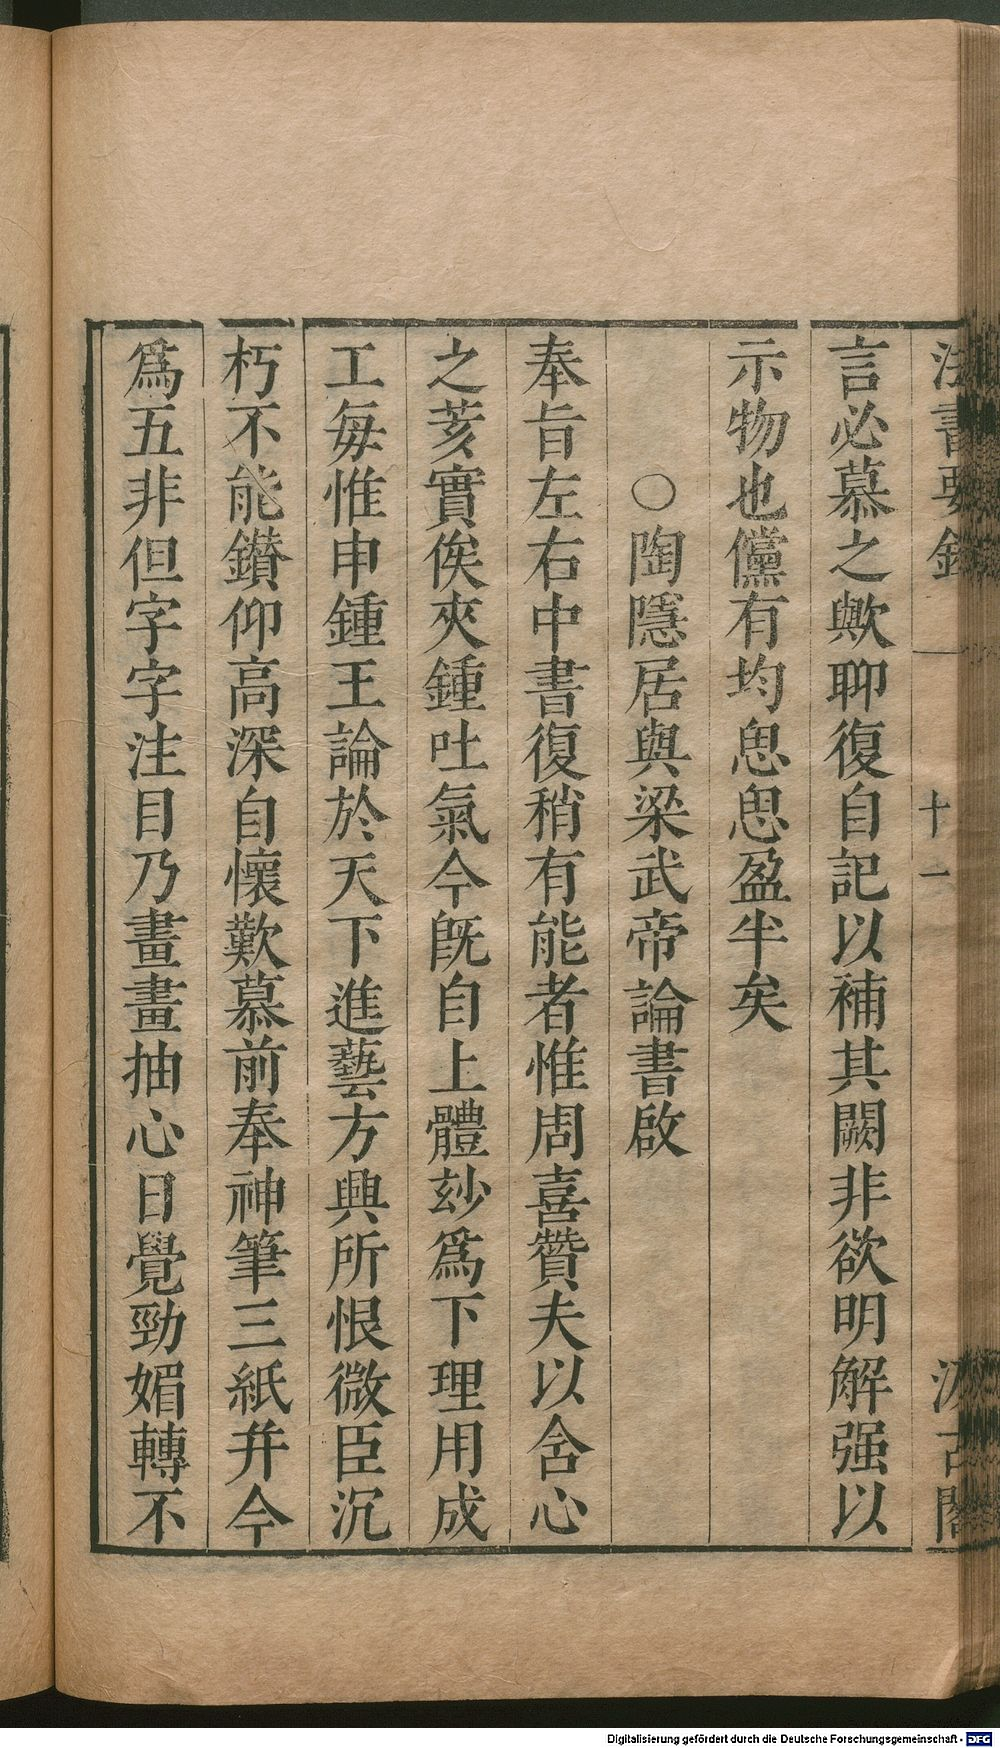 法書要錄 十一 汲古閣
言必慕之歟聊復自記以補其闕非欲明解强以
示物也儻有均思思盈半矣
○陶隱居與梁武帝論書啟
奉旨左右中書復稍有能者惟周喜贊夫以含心
之荄實俟夾鍾吐氣今旣自上體玅爲下理用成
工毎惟申鍾王論於天下進藝方興所恨微臣沉
朽不能鑽仰高深自懷歎慕前奉神筆三紙幷今
爲五非但字字注目乃畫畫抽心日覺勁媚轉不
Digitalisierung gefördert durch die Deutsche Forschungsgemeinschaft - DFG